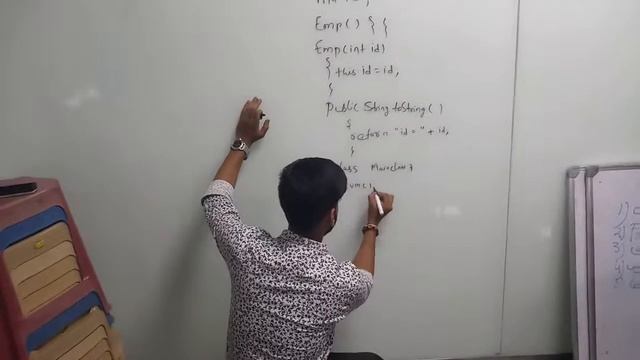 Emp() { {
Emp(int id)
{
this id = id,
}
public String toString()
{
return "id = " + id,
}
class